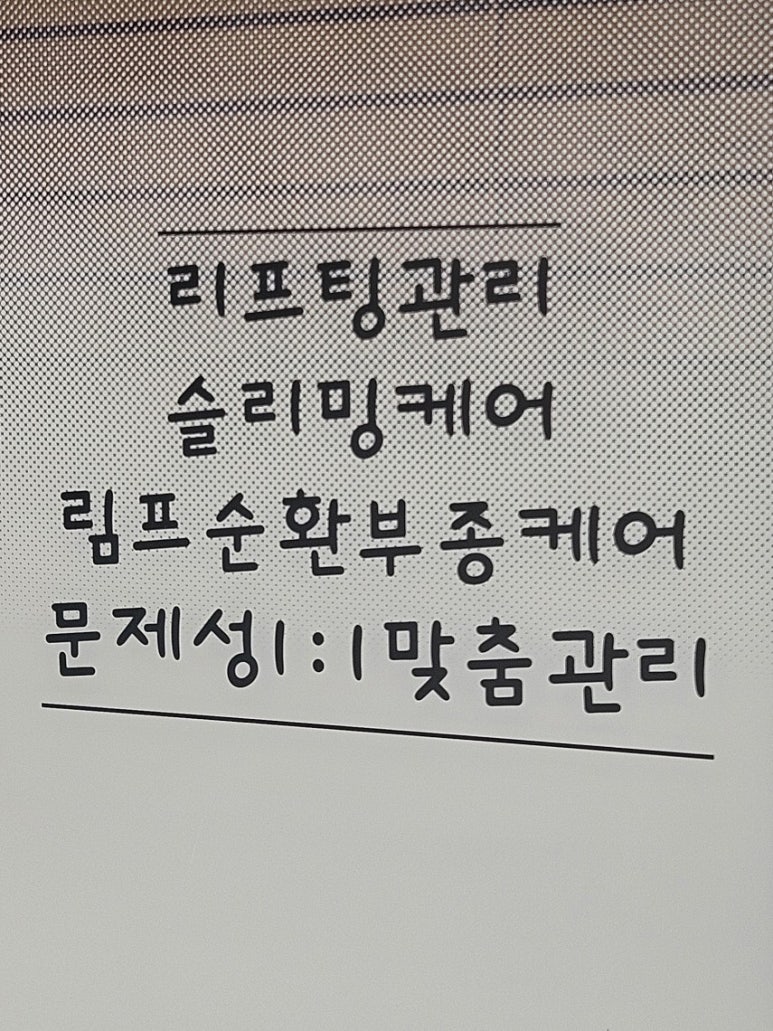 리프팅관리
슬리밍케어
림프순환부종케어
문제성1:1맞춤관리